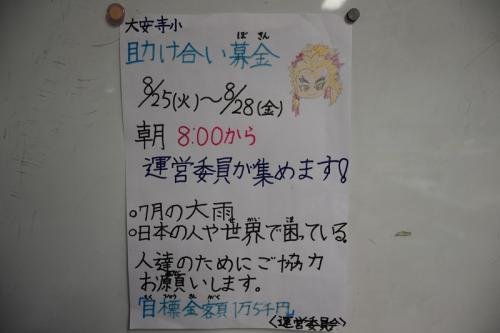 大安寺小
助け合い募金
ぼ きん
8/25(火)〜8/28(金)
朝 8:00から
運営委員が集めます!
○7月の大雨
せかい こま
○日本の人や世界で困っている
人達のためにご協力
お願いします。
もくひょう きん がく
目標金額1万5千円
〈運営委員会〉